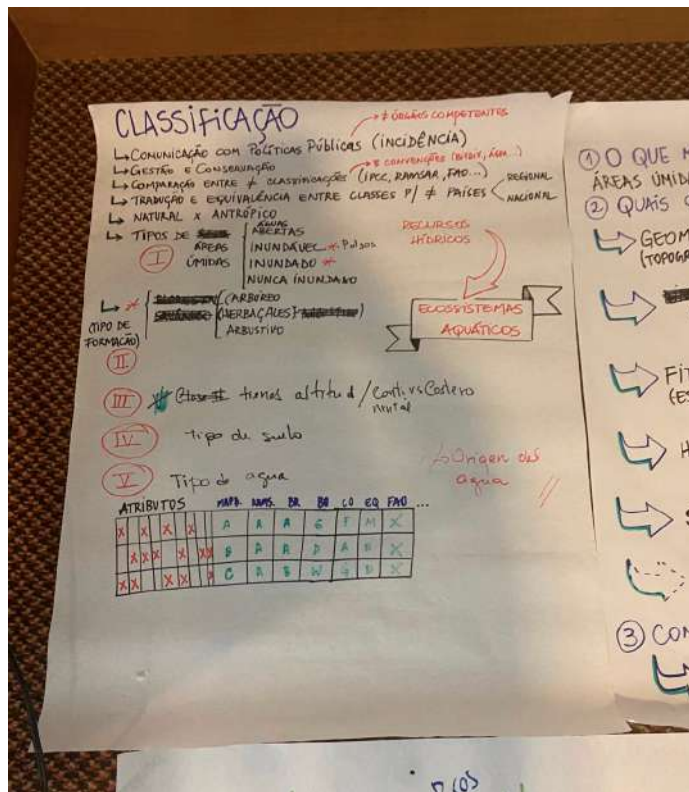 CLASSIFICAÇÃO
↳ COMUNICAÇÃO COM POLÍTICAS PÚBLICAS (INCIDÊNCIA) → ≠ ÓRGÃOS COMPETENTES
↳ GESTÃO E CONSERVAÇÃO
↳ COMPARAÇÃO ENTRE ≠ CLASSIFICAÇÕES (IPCC, RAMSAR, FAO...) CONVENÇÕES
↳ TRADUÇÃO E EQUIVALÊNCIA ENTRE CLASSES P/ ≠ PAÍSES REGIONAL
NACIONAL
↳ NATURAL X ANTRÓPICO
↳ TIPOS DE ÁREAS ÚMIDAS
I
ÁGUAS ABERTAS
INUNDÁVEL * Pulsos
INUNDADO *
NUNCA INUNDADO
RECURSOS HÍDRICOS
ECOSSISTEMAS AQUÁTICOS
↳ * (TIPO DE FORMAÇÃO)
II
ARBÓREO
HERBAÇALES
ARBUSTIVO
III tierras altitud / Conti nental vs Costero
IV tipo de suelo
V Tipo de agua
Origen del agua
ATRIBUTOS MAPB. RAMS. BR BO CO EQ FAO ...
X X X X A A A G F M X
X X X X X X B A A D A X
X X X X C A B W G D X
① O QUE
ÁREAS
② QUAIS
GEOM
(TOPOGR
③ CON